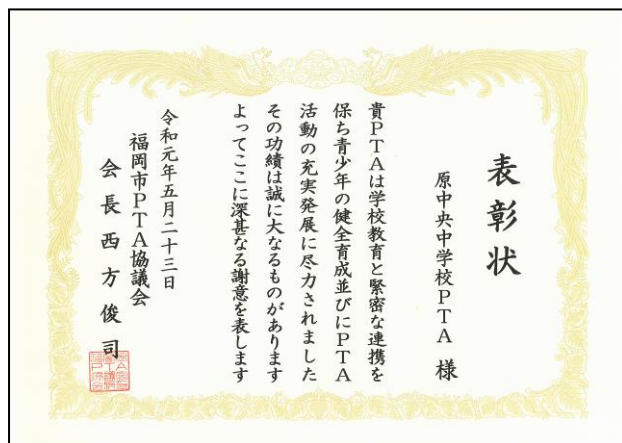 表彰状
原中央中学校PTA 様
貴PTAは学校教育と緊密な連携を
保ち青少年の健全育成並びにPTA
活動の充実発展に尽力されました
その功績は誠に大なるものがあります
よってここに深甚なる謝意を表します
令和元年五月二十三日
福岡市PTA協議会
会長 西方俊司